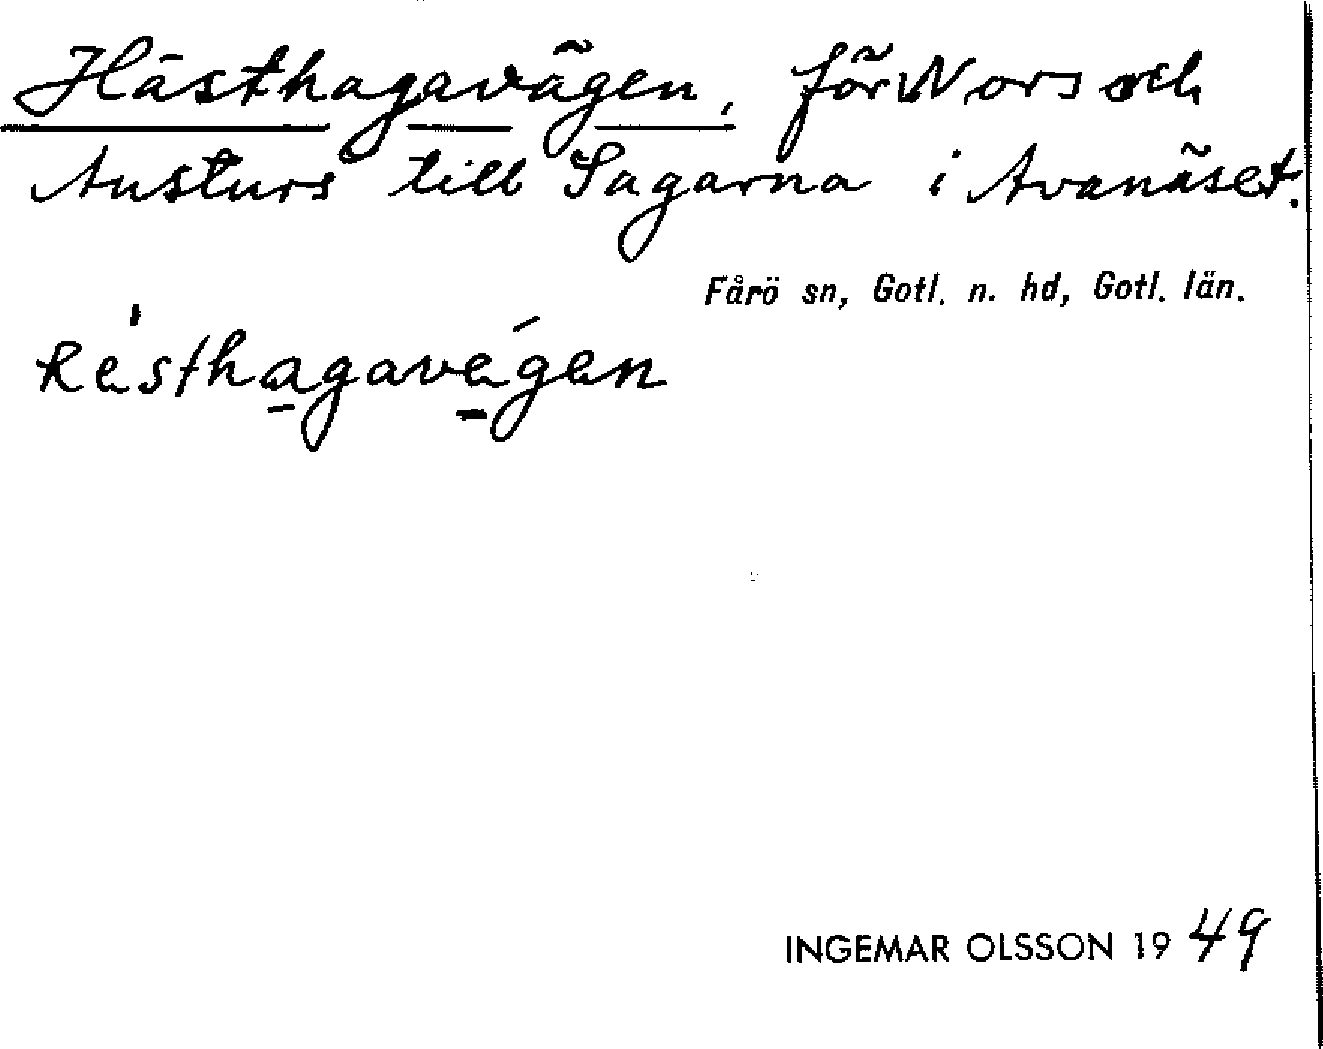 Hästhagavägen, för Nors och
Austurs till Sagarna i Avanäset.
Fårö sn, Gotl. n. hd, Gotl. län.
Résthagavégen
INGEMAR OLSSON 1949